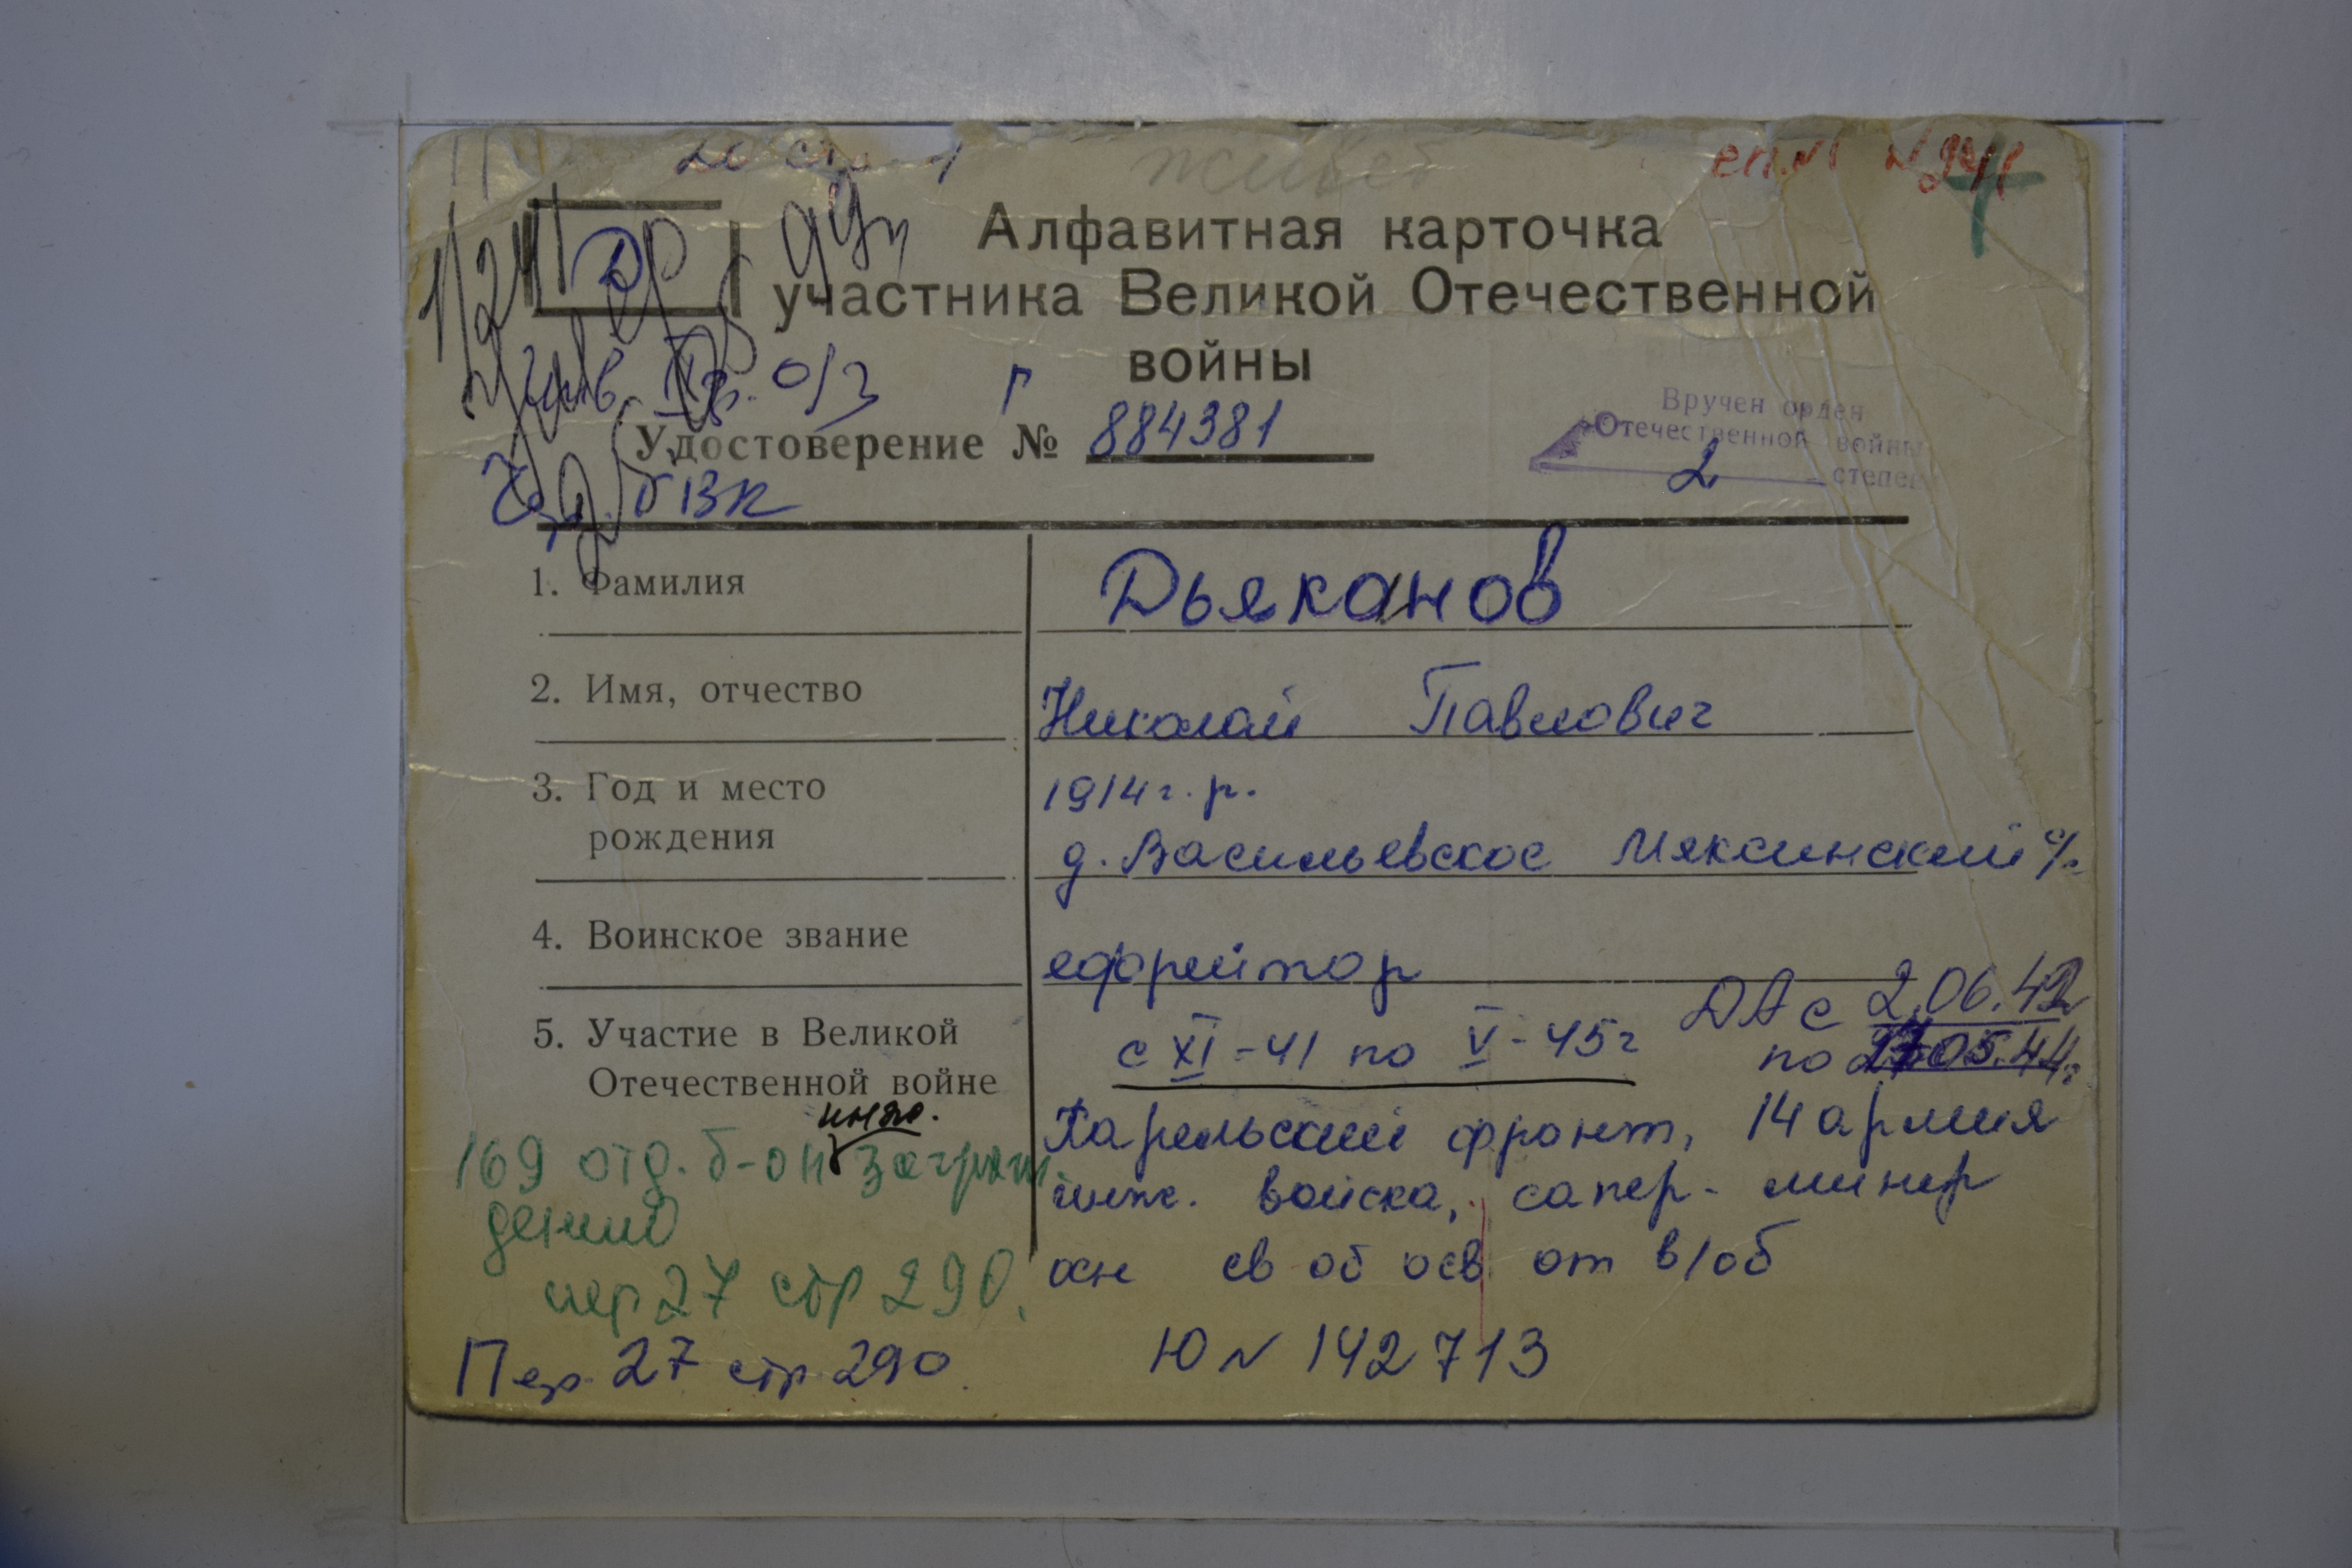 живет
сп. №1 № 2411
1/241
Д
Алфавитная карточка
участника Великой Отечественной
войны
Инв. IIгр. о/з
Г
Удостоверение № 884381
Вручен орден
Отечественной войны
2 степен
Чер. ГВК
1. Фамилия Дьяканов
2. Имя, отчество Николай Павлович
3. Год и место 1914 г. р.
рождения д. Васильевское Мяксинский с/с
4. Воинское звание ефрейтор
5. Участие в Великой с XI-41 по V-45г
Отечественной войне
ДА с 2.06.42
по 27.05.44г
Карельский фронт, 14 армия
инж. войска, сапер-минер
осн св об осв от в/об
инж.
169 отд. б-он заграж
дений
пер 27 стр 290.
Пер. 27 стр. 290.
Ю N 142713